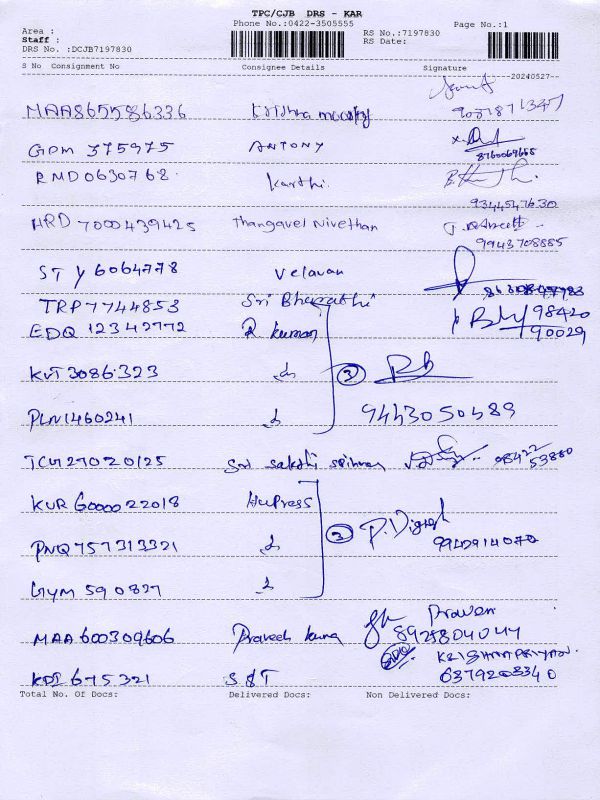 TPC/CJB DRS - KAR
Phone No.:0422-3505555
Page No.:1
Area :
Staff :
DRS No. :DCJB7197830
RS No.:7197830
RS Date:
S No Consignment No Consignee Details Signature
20240527
MAA865586336 Krishna moorthy
9081871347
GDM 375975 ANTONY
8760069668
RMD0630768 Karthi
9344547630
HRD 7000439425 Thangavel Nivethan
9943708885
STY 6064778 Velavan
TRP7744853 Sri Bharathi
EDQ 12342772 R Kumar 98420
90029
KVT3086323 3
PLN1460241 9443050489
TCV127020125 Sri sakthi 98422
53880
KUR G000022018 HuPress
PNQ757313321 3 P. Vignesh
9942914070
GYM 590827
MAA600309606 Praveen Kumar Praven
8925804044
675321 S&T KRISHNAPRIYAN
6379208340
Total No. Of Docs: Delivered Docs: Non Delivered Docs: